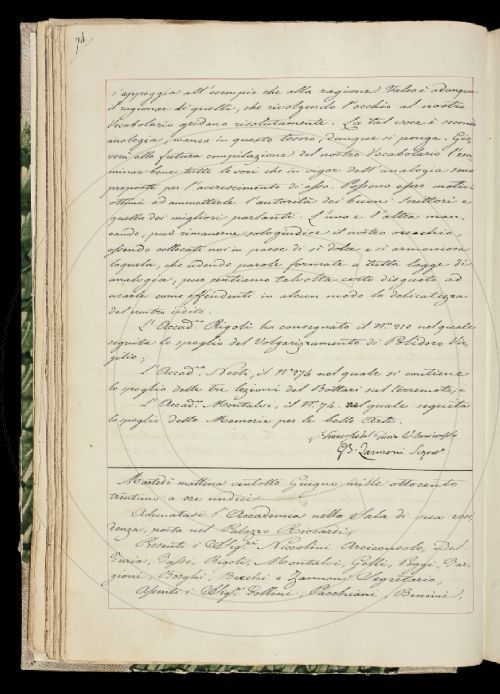 74
s'appoggia all'esempio che alla ragione. Tale è adunque
il ragionar di quelli, che rivolgendo l'occhio al nostro
Vocabolario gridano risolutamente. La tal voce è secondo
analogia, manca in questo tesoro, dunque si ponga. Gio-
verà alla futura compilazione del nostro Vocabolario l'esa-
minar bene tutte le voci che in vigor dell'analogia sono
proposte per l'accrescimento di esso. Possono esser motivi
ottimi ad ammetterle l'autorità dei buoni Scrittori e
quella dei migliori parlanti. L'una e l'altra man-
cando, può rimanerne solo giudice il nostro orecchio,
essendo collocati noi in paese di sì dolce e sì armoniosa
loquela, che udendo parole formate a tutta legge di
analogia, pur sentiamo talvolta certo disgusto ad
usarle come offendenti in alcun modo la delicatezza
del nostro udito.
L'Accad.co Rigoli ha consegnato il N.o 210 nel quale
seguita lo spoglio del Volgarizzamento di Polidoro Vir-
gilio;
L'Accad.co Nesti, il N.o 374 nel quale si contiene
lo spoglio delle tre lezioni del Bottari sul terremoto, e
L'Accad.co Montalvi, il N.o 74. nel quale seguita
lo spoglio delle Memorie per le belle Arti.
GB. Zannoni Segret.o
Martedì mattina ventotto Giugno mille ottocento
trentuno a ore undici
Adunatasi l'Accademia nella Sala di sua resi-
denza, posta nel Palazzo Riccardi,
Presenti i Sig.ri Niccolini Arciconsolo, Del
Furia, Tassi, Rigoli, Montalvi, Gelli, Poggi, Tar-
gioni, Borghi, Becchi e Zannoni Segretario,
Assenti i Sig.ri Follini, Pacchiani, Bencini,